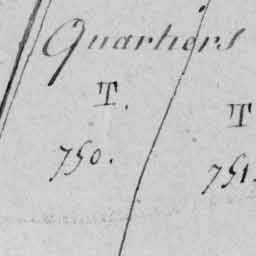 Quartiers
T. T
750. 751.